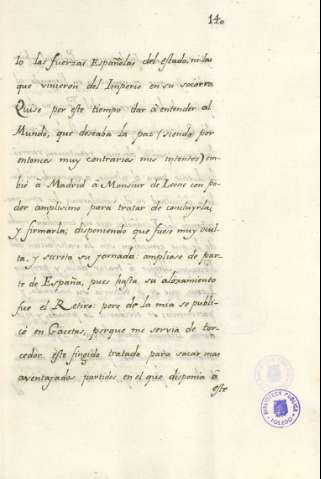 14.
lo las fuerzas Españolas del estado, ni las
que vinieron del Imperio en su socorro
Quise por este tiempo dar à entender al
Mundo, que deseaba la paz (siendo por
entonces muy contrarios mis intentos) em-
bié à Madrid à Monsiur de Leone con po-
der amplisimo para tratar de concluyrla,
y firmarla; disponiendo que fuese muy ocul-
ta, y secreta su jornada: ampliase de par-
te de España, pues hasta su aloxamiento
fue el Retiro: pero de la mia se publi-
có en Gacetas, porque me servia de tor-
cedor, este fingido tratado para sacar mas
aventajados partidos, en el que disponia à
este
BIBLIOTECA PUBLICA
TOLEDO